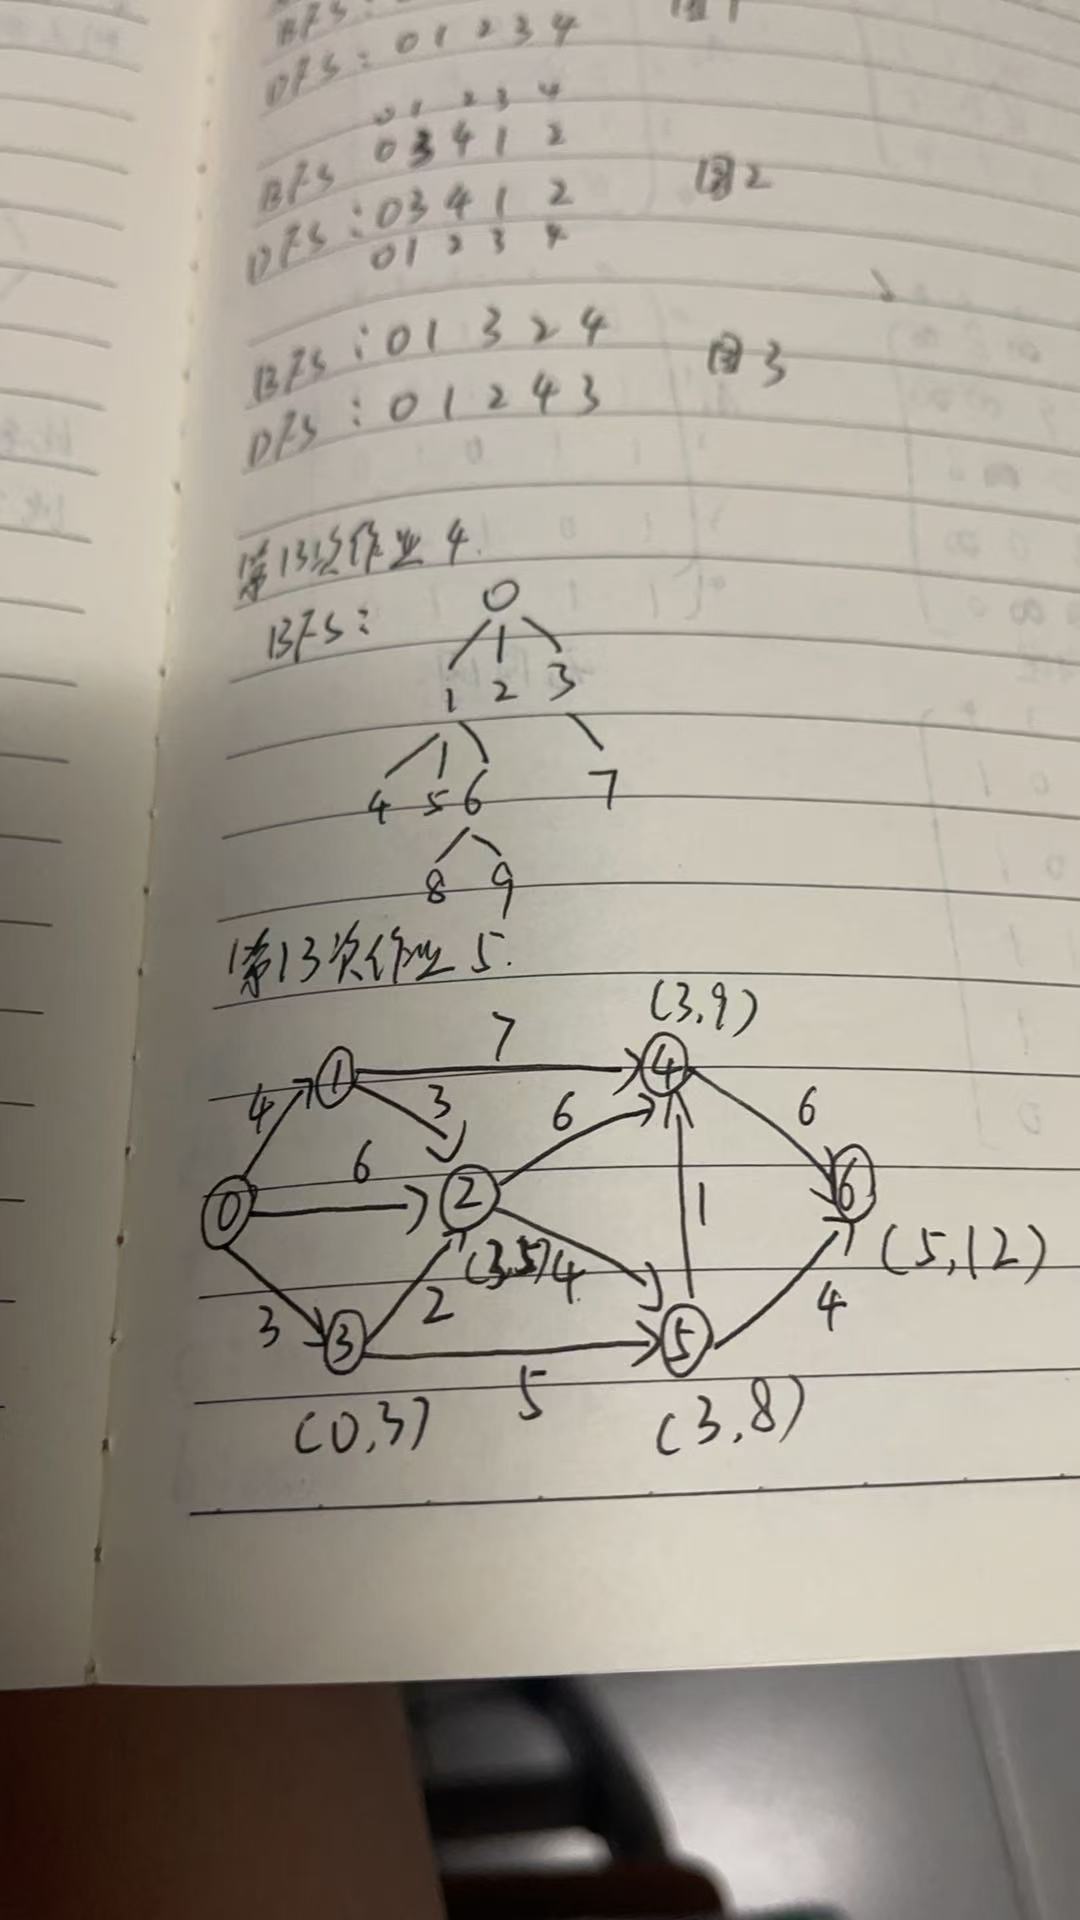 BFS:
图1
DFS: 0 1 2 3 4
0 1 2 3 4
BFS 0 3 4 1 2
图2
DFS: 0 3 4 1 2
0 1 2 3 4
BFS: 0 1 3 2 4
图3
DFS: 0 1 2 4 3
第13次作业 4.
BFS:
0
1 2 3
4 5 6 7
8 9
第13次作业 5.
(3,9)
7
1 4
4 3 6 6
6
0 2 1 6
(3,5) 4 (5,12)
3 2 4
3 5
5
(0,3) (3,8)